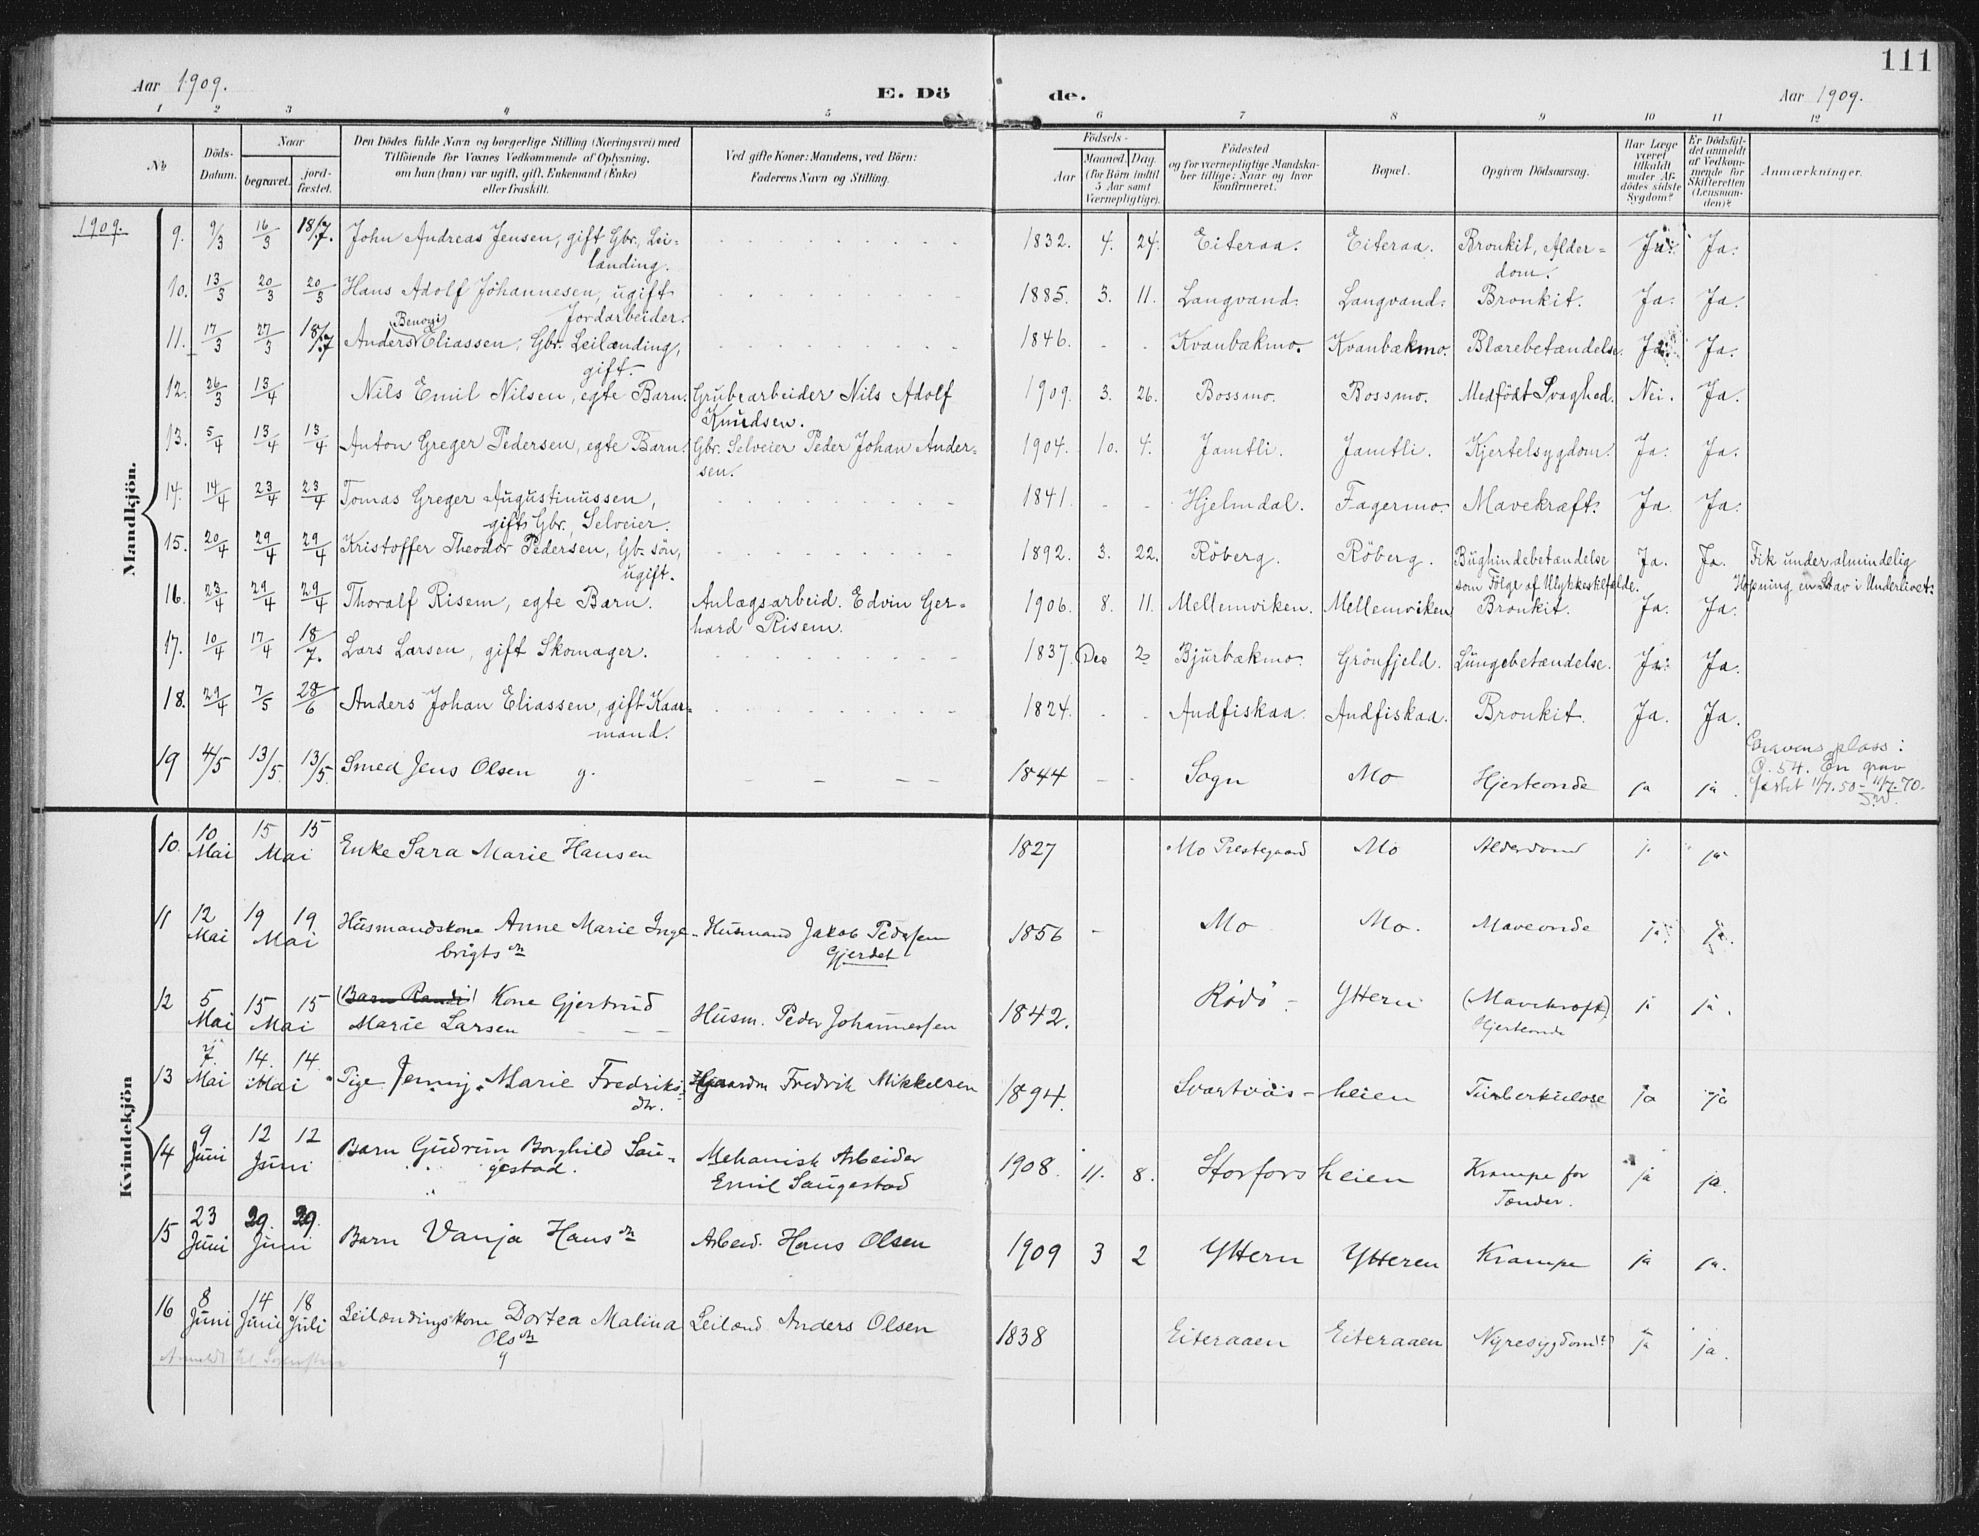 111
Aar 1909. E. Dö de. Aar 1909.
1 2 3 4 5 6 7 8 9 10 11 12
No Döds-Datum. Naar begravet. jordfæstet. Den Dödes fulde Navn og borgerlige Stilling (Næringsvei) med Tilföiende for Voxnes Vedkommende af Oplysning, om han (hun) var ugift, gift, Enkemand (Enke) eller fraskilt. Ved gifte Koner: Mandens, ved Börn: Faderens Navn og Stilling. Födsels- Aar Maaned. Dag. (for Börn indtil 5 Aar samt Værnepligtige). Födested og for værnepligtige Mandskaber tillige: Naar og hvor konfirmeret. Bopæl. Opgiven Dödsaarsag. Har Læge været tilkaldt under Afdödes sidste Sygdom? Er Dödsfaldet anmeldt af Vedkommende for Skifteretten (Lensmanden)? Anmærkninger.
1909.
Mandkjön.
9. 9/3 16/3 18/7. John Andreas Jensen, gift Gbr., Leilænding. 1832. 4. 24. Eiteraa. Eiteraa. Bronkit, Alderdom. Ja. Ja.
10. 13/3 20/3 20/3 Hans Adolf Johannesen, ugift Jordarbeider. 1885. 3. 11. Langvand. Langvand. Bronkit. Ja. Ja.
11. 17/3 27/3 18/7 Anders Benoni Eliassen, Gbr. Leilænding, gift. 1846. - - Kvanbækmo. Kvanbækmo. Blærebetændelse. Ja. Ja.
12. 26/3 13/4 Nils Emil Nilsen, egte Barn. Grubearbeider Nils Adolf Knudsen. 1909. 3. 26. Bossmo. Bossmo. Medfödt Svaghed. Nei. Ja.
13. 5/4 13/4 13/4 Anton Greger Pedersen, egte Barn. Gbr. Selveier Peder Johan Andersen. 1904. 10. 4. Jamtli. Jamtli. Kjertelsygdom. Ja. Ja.
14. 14/4 23/4 23/4 Tomas Greger Augustinussen, gift Gbr., Selveier. 1841. - - Hjelmdal. Fagermo. Mavekræft. Ja Ja.
15. 20/4 29/4 29/4 Kristoffer Theodor Pedersen, Gb. sön, ugift. 1892. 3. 22. Röberg. Röberg. Bughindebetændelse som Fölge af Ulykkestilfælde. Ja. Ja. Fik under almindelig Hopning en Stav i Underlivet.
16. 23/4 29/4 29/4 Thoralf Risem, egte Barn. Anlægsarbeid. Edvin Gerhard Risem. 1906. 8. 11. Mellemviken. Mellemviken Bronkit. Ja. Ja.
17. 10/4 17/4 18/7. Lars Larsen, gift Skomager. 1837. Des 2 Bjurbækmo. Grönfjeld. Lungebetændelse. Ja. Ja.
18. 29/4 7/5 28/6 Anders Johan Eliassen, gift Kaarmand. 1824. - - Andfiskaa. Andfiskaa. Bronkit. Ja. Ja.
19 4/5 13/5 13/5 Smed Jens Olsen g. 1844 - - Sogn Mo Hjerteonde ja ja. Gravens plass: Ø. 54. En grav festet 11/7.50 - 11/7.70.
Kvindekjön
10. 10 Mai 15 15 Mai Enke Sara Marie Hansen 1827 Mo Prestegaard Mo Alderdom j. ja
11 12 Mai 19 19. Mai Husmandskone Anne Marie Ingebrigtsdr Husmand Jakob Pedersen Gjerdet 1856 - Mo Mo. Maveonde ja. ja.
12 5 Mai 15 15 Mai (Barn Randi) Kone Gjertrud Marie Larsen Husm. Peder Johannessen 1842. Rödö - Yttern (Mavekræft) Hjerteonde ja ja.
13 7 Mai 14. 14. Mai Pige Jenny Marie Fredriksdr. Gaardm Fredrik Mikkelsen 1894. Svartvasheien Tuberkulose ja ja
14 9 Juni 12 12 Juni Barn Gudrun Borghild Saugestad. Mekanisk Arbeider Emil Saugestad 1908. 11. 8. Storforsheien Krampe for Tænder. ja ja.
15 23 Juni 29. 29. Juni Barn Vanja Hansdr Arbeid. Hans Olsen 1909 3 2 Yttern Ytteren Krampe ja ja.
16 8 Juni 14 Juni 18 Juli Leilændingskone Dortea Malina Olsdr g Leilænd Anders Olsen 1838 Eiteraaen Eiteraaen Nyresygdom ja ja.